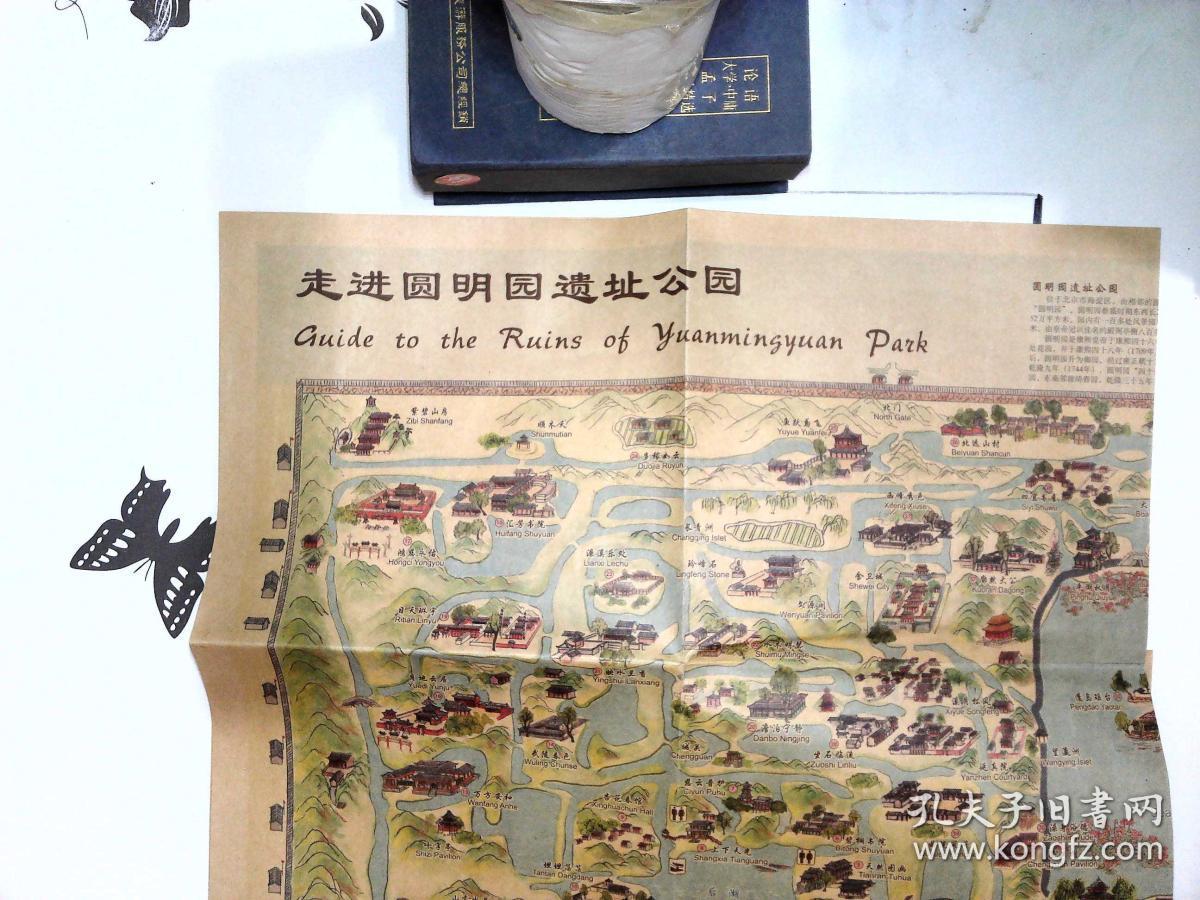 论语
大学·中庸
孟子
走进圆明园遗址公园
Guide to the Ruins of Yuanmingyuan Park
圆明园遗址公园
紫碧山房
Zibi Shanfang
顺木天
Shunmutian
多稼如云
Duojia Ruyun
鱼跃鸢飞
Yuyue Yuanfei
北门
North Gate
北远山村
Beiyuan Shancun
西峰秀色
Xifeng Xiuse
Siyi Shuwu
汇芳书院
Huifang Shuyuan
鸿慈永祜
Hongci Yongyou
濂溪乐处
Lianxi Lechu
长青洲
Changqing Islet
玲峰石
Lingfeng Stone
舍卫城
Shewei City
廓然大公
Kuoran Dagong
文源阁
Wenyuan Pavilion
日天琳宇
Ritian Linyu
水木明瑟
Shuimu Mingse
映水兰香
Yingshui Lanxiang
月地云居
Yuedi Yunju
武陵春色
Wuling Chunse
澹泊宁静
Danbo Ningjing
城关
Chengguan
坐石临流
Zuoshi Linliu
Xiyue Songfeng
延真院
Yanzhen Courtyard
蓬岛瑶台
Pengdao Yaotai
望瀛洲
Wangying Islet
万方安和
Wanfang Anhe
杏花春馆
Xinghuachun Hall
慈云普护
Ciyun Puhu
十字亭
Shizi Pavilion
上下天光
Shangxia Tianguang
碧桐书院
Bitong Shuyuan
坦坦荡荡
Tantan Dangdang
天然图画
Tianran Tuhua
后湖
孔夫子旧書网
www.kongfz.com